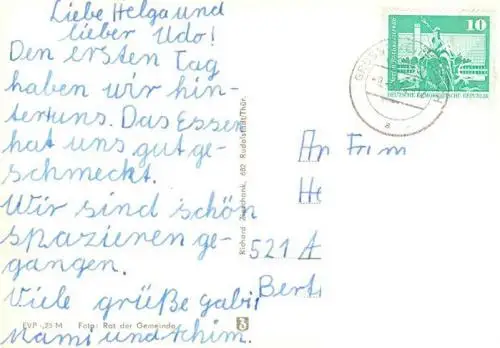 Liebe Helga und
lieber Udo!
Den ersten Tag
haben wir hin-
ter uns. Das Essen
hat uns gut ge-
schmeckt.
Wir sind schön
spazieren ge-
gangen.
Viele grüße gabi
Mami und Achim.
EVP -,25 M Foto: Rat der Gemeinde
Richard Zieschank, 682 Rudolstadt/Thür.
10
DEUTSCHE DEMOKRATISCHE REPUBLIK
An Fam
He
521 A
Bert